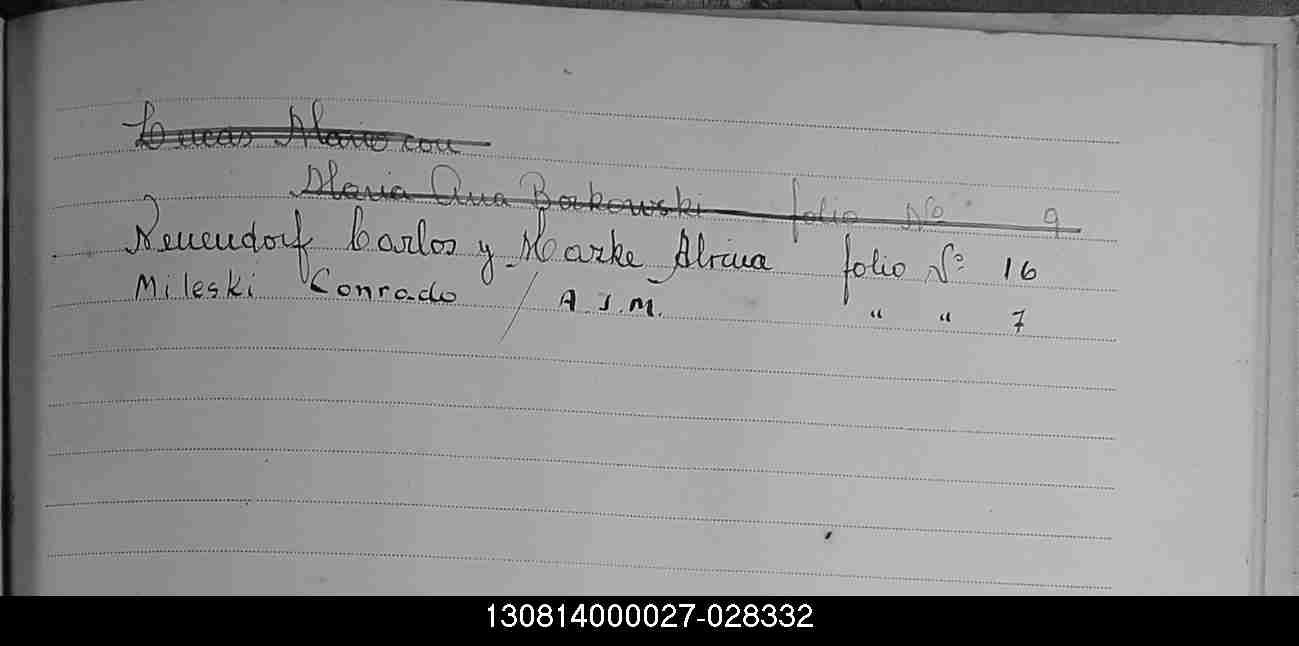 Lucas Mario con
Maria Ana Borkowski folio Nº 9
Neuendorf Carlos y Harke Alvina folio Nº 16
Mileski Conrado / A.J.M. " " 7
130814000027-028332